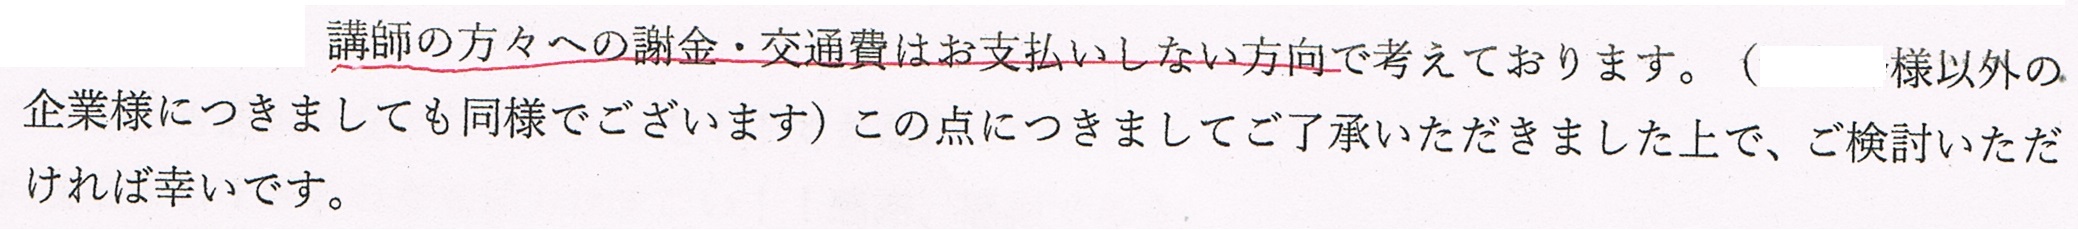 講師の方々への謝金・交通費はお支払いしない方向で考えております。（様以外の
企業様につきましても同様でございます）この点につきましてご了承いただきました上で、ご検討いただ
ければ幸いです。